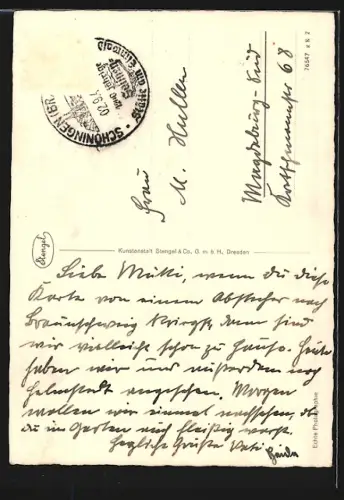 SCHÖNINGEN (BR
Frau
M. Hullen
Magdeburg-Süd
68
76547 x R 2
Kunstanstalt Stengel & Co., G. m. b. H., Dresden
Stengel
Liebe Mutti, wenn du diese
Karte von einem Abstecher nach
Braunschweig kriegst, dann sind
wir vielleicht schon zu Hause. Heute
haben wir uns außerdem noch
Helmstedt angesehen. Morgen
wollen wir einmal nachsehen, ob
du im Garten auch fleißig warst.
Herzliche Grüße Vati
Echte Photographie